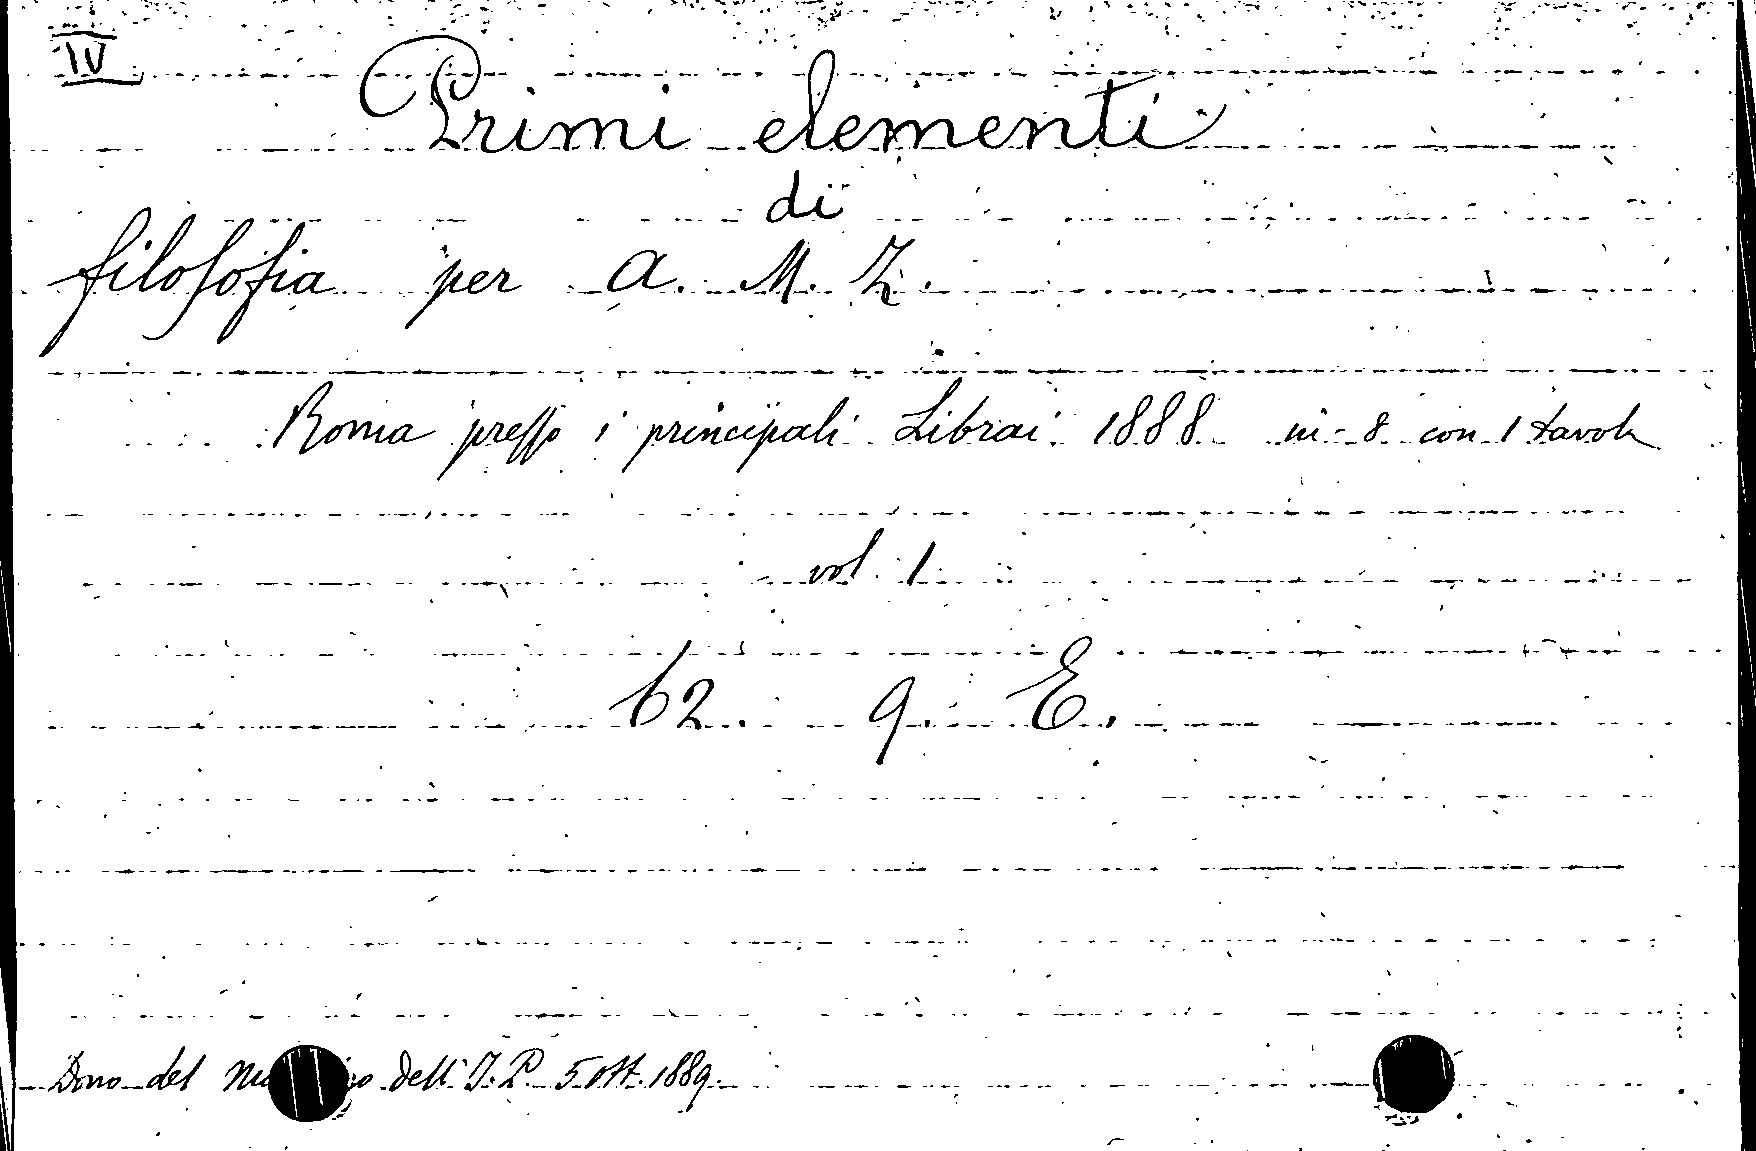 IV
Primi elementi
di
filosofia per A. M. Z.
Roma presso i principali Librai 1888 in-8 con 1 tavola
vol. 1
62. 9. E.
Dono del dell' I. P. 5 Ott. 1889.